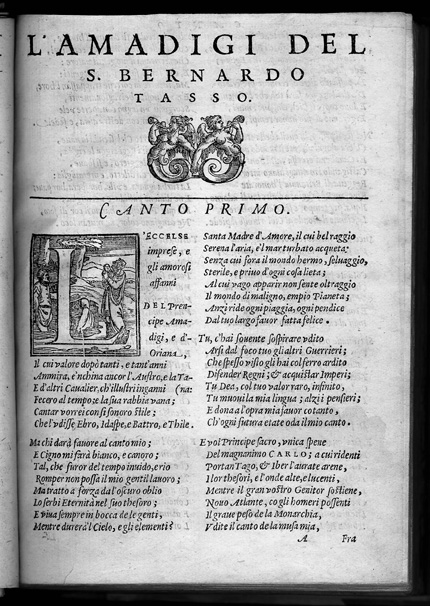 L'AMADIGI DEL
S. BERNARDO
TASSO.
CANTO PRIMO.
L'ECCELSE
imprese, e
gli amorosi
affanni
DEL Pren-
cipe Ama-
digi, e d'-
Oriana,
Il cui valore dopo tanti, e tant'anni
Ammira, e'nchina ancor l'Austro, e la Ta-
E d'altri Cavalier, ch'illustri inganni (na:
Fecero al tempo: e la sua rabbia vana;
Cantar vorrei con sì sonoro stile;
Che l'udisse Ebro, Idaspe, e Battro, e Thile.
Ma chi darà favore al canto mio;
E Cigno mi farà bianco, e canoro;
Tal, che furor del tempo invido, e rio
Romper non possa il mio gentil lavoro;
Ma tratto a forza da l'oscuro oblio
Lo serbi Eternità nel suo thesoro;
E viva sempre in bocca de le genti,
Mentre durerà'l Cielo, e gli elementi?
Santa Madre d'Amore, il cui bel raggio
Serena l'aria, e'l mar turbato acqueta;
Senza cui fora il mondo hermo, selvaggio,
Sterile, e privo d'ogni cosa lieta;
Al cui vago apparir non sente oltraggio
Il mondo di maligno, empio Pianeta;
Anzi ride ogni piaggia; ogni pendice
Dal tuo largo favor fatta felice.
Tu, c'hai sovente sospirare udito
Arsi dal foco tuo gli altri Guerrieri;
Che spesso visto gli hai col ferro ardito
Difender Regni; & acquistar Imperi;
Tu Dea, col tuo valor raro, infinito,
Tu muovi la mia lingua; alzi i pensieri;
E dona a l'opra mia favor cotanto,
Ch'ogni futura etate oda il mio canto.
E voi Principe sacro, unica speve
Del magnanimo CARLO; a cui ridenti
Portan Tago, & Iber l'aurate arene,
Hor thesori, e l'onde alte, e lucenti,
Mentre il gran vostro Genitor sostiene,
Novo Atlante, co gli homeri possenti
Il grave peso de la Monarchia,
Vdite il canto de la musa mia,
A Fra